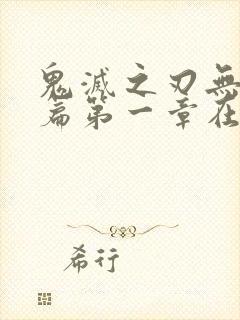 鬼滅之刃無
篇第一章在
希行